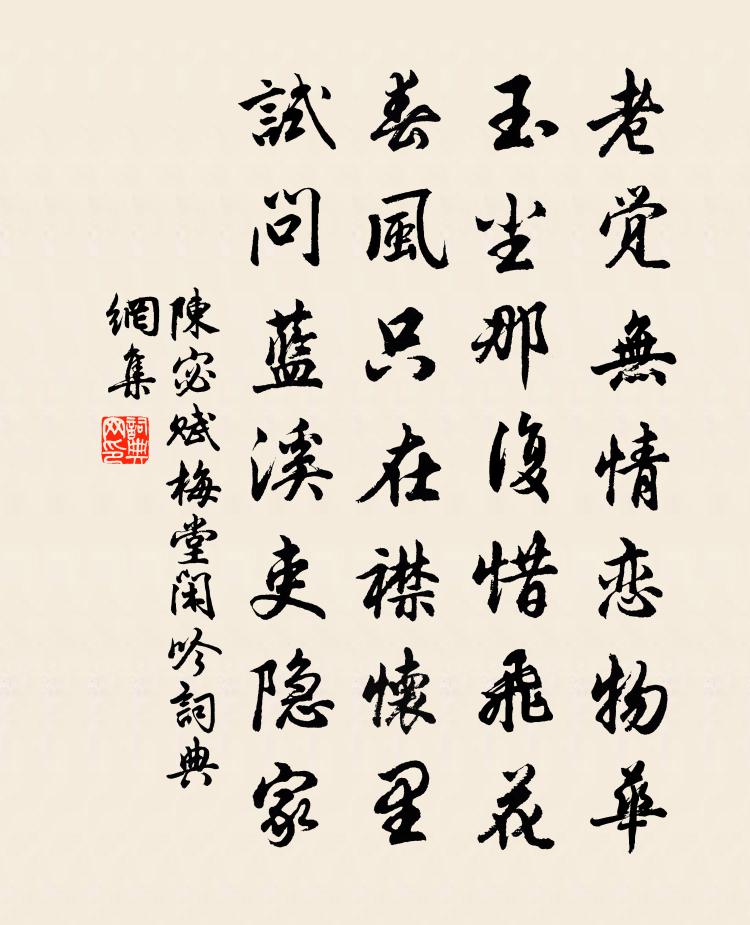 老觉無情恋物華
玉尘那復惜飛花
春風只在襟懷里
試問藍溪吏隐家
陳宓賦梅堂閑吟詞典
網集
詞典网印